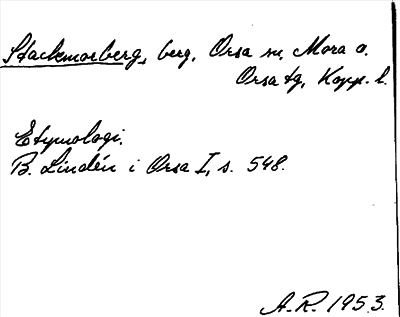 Stackmorberg, berg, Orsa sn, Mora o.
Orsa tg, Kopp. l.
Etymologi.
B. Lindén i Orsa I, s. 548.
A.R. 1953.